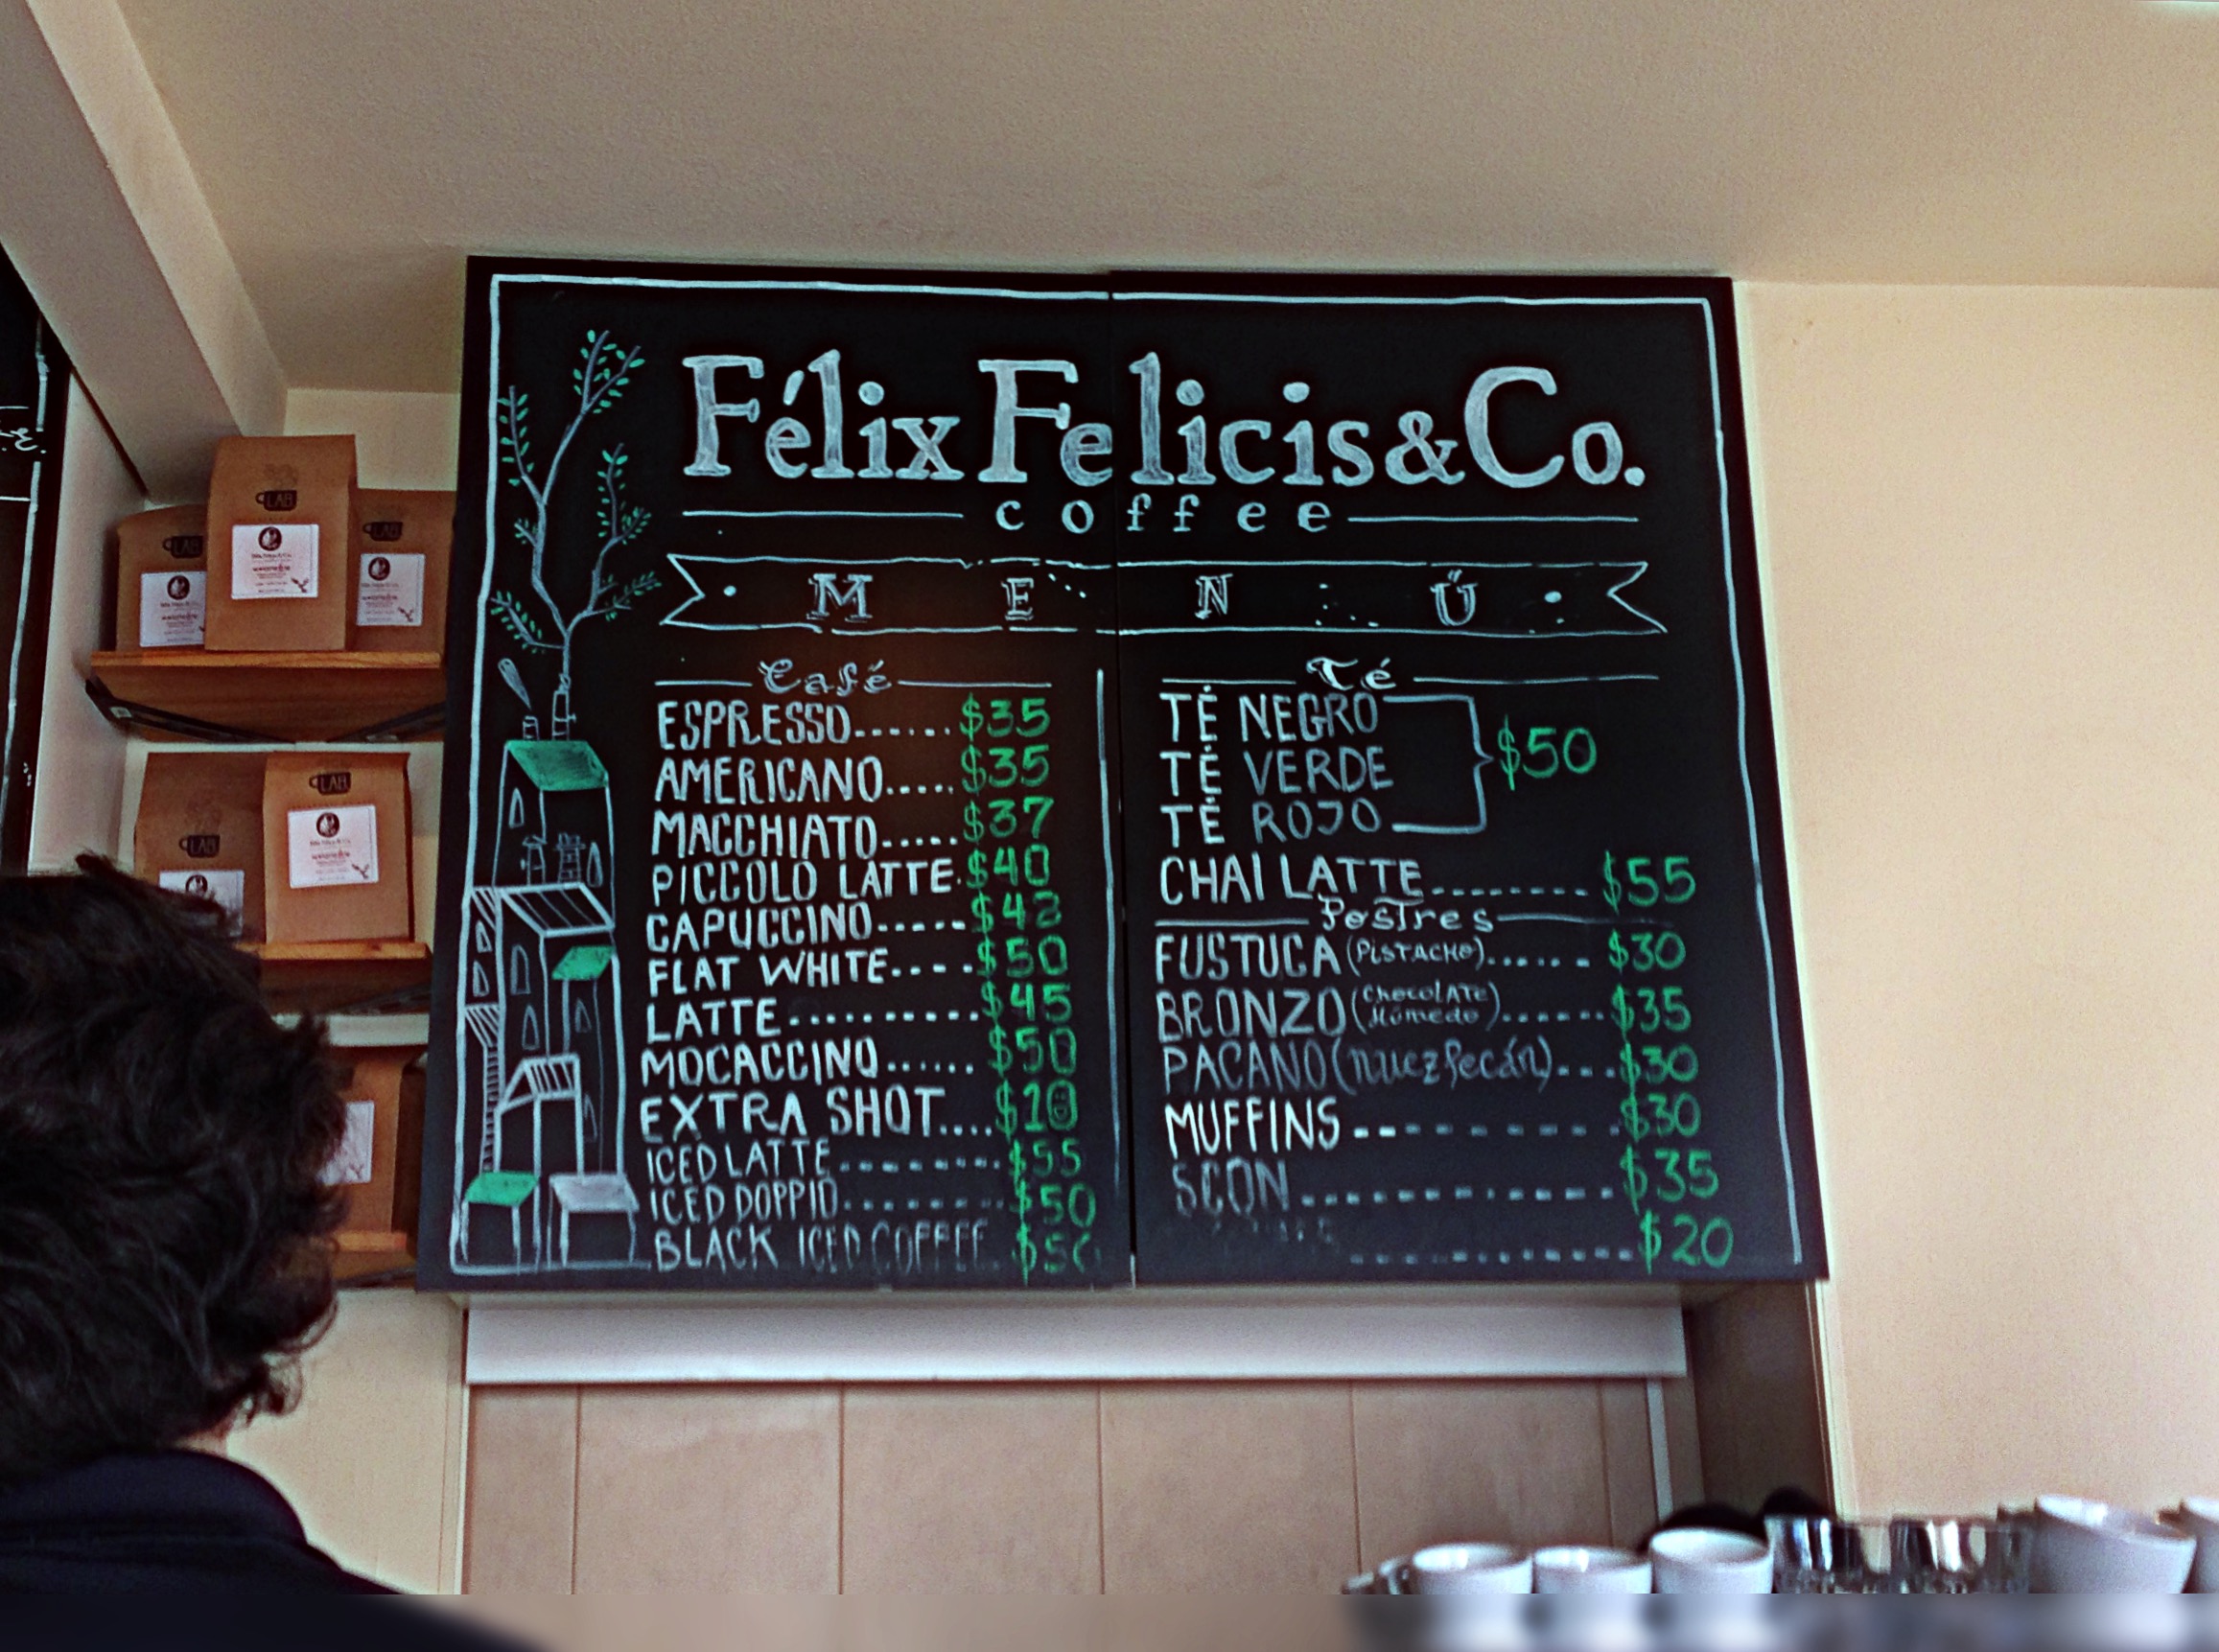 Félix Felicis & Co.
coffee
MENÚ
Café
ESPRESSO......$35
AMERICANO.....$35
MACCHIATO.....$37
PICCOLO LATTE.$40
CAPUCCINO-----$42
FLAT WHITE----$50
LATTE..........$45
MOCACCINO......$50
EXTRA SHOT....$10
ICED LATTE--------$55
ICED DOPPIO--------$50
BLACK ICED COFFEE $50
Té
TÉ NEGRO
TÉ VERDE
TÉ ROJO
$50
CHAI LATTE--------$55
Postres
FUSTUCA (PISTACHO)......$30
BRONZO (Chocolate Húmedo)......$35
PACANO (nuez Pecán)...$30
MUFFINS ---------$30
SCON ----------$35
----------$20
LAB
LAB
LAB
LAB
LAB